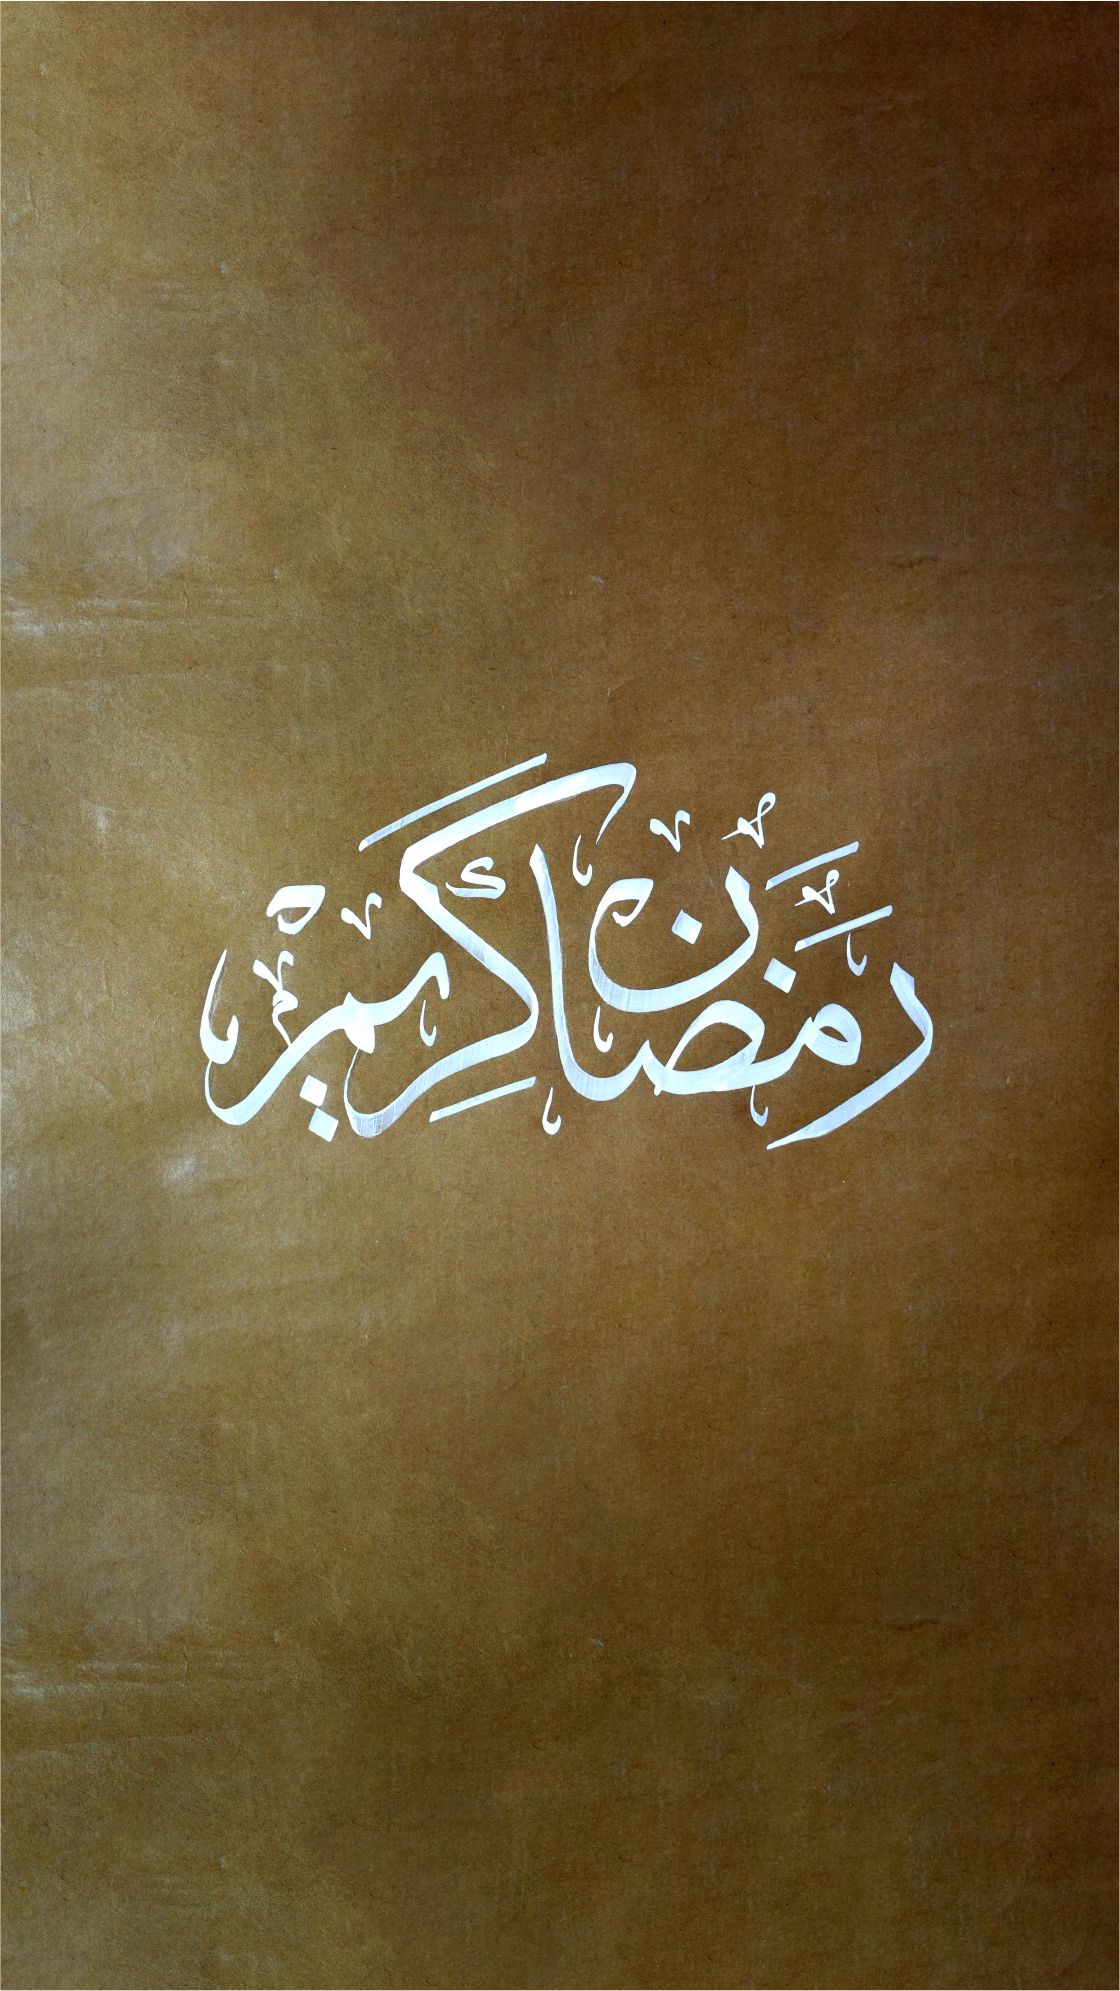 رَمَضَانُ كَرِيمٌ